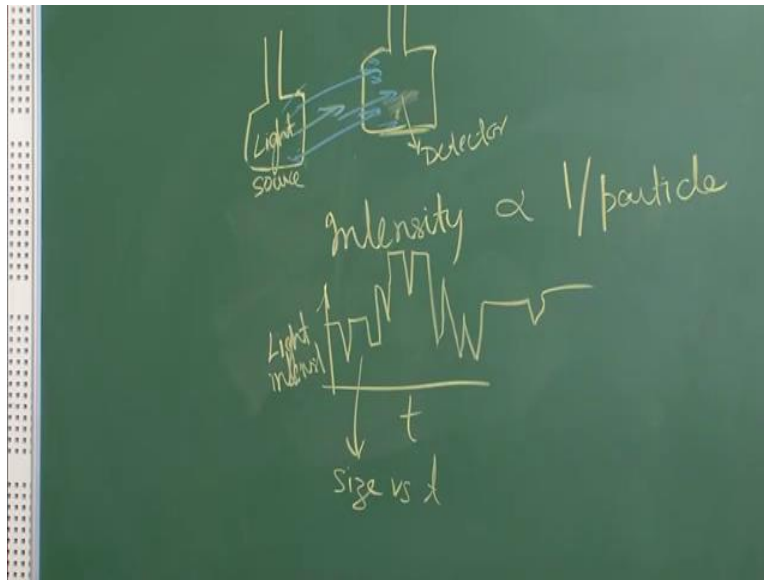 Light
source
Detector
Intensity ∝ 1/particle
Light
intensi
t
Size vs t